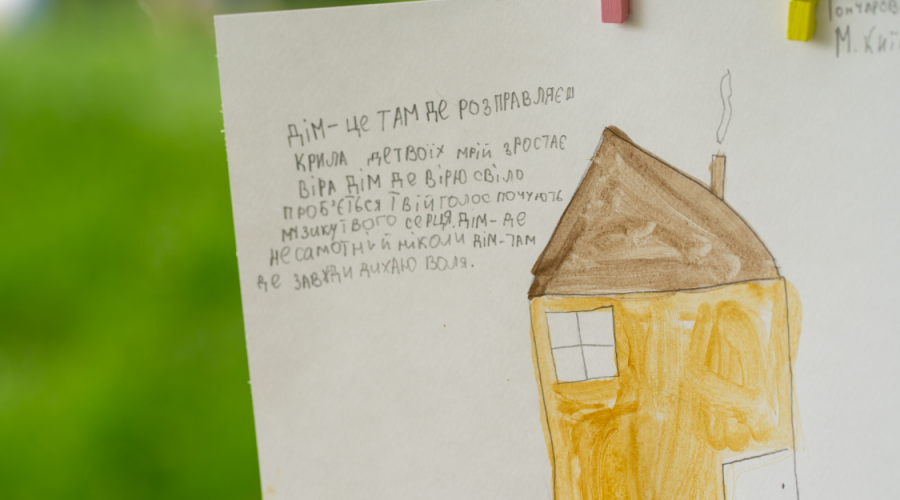 ДІМ- ЦЕ ТАМ ДЕ РОЗПРАВЛЯЄШ
КРИЛА ДЕ ТВОЇХ МРІЙ ЗРОСТАЄ
ВІРА ДІМ ДЕ ВІРЮ СВІЛО
ПРОБ'ЄТЬСЯ І ТВІЙ ГОЛОС ПОЧУЮТЬ
МУЗИКУ ТВОГО СЕРЦЯ. ДІМ- ДЕ
НЕ САМОТНІЙ НІКОЛИ ДІМ-ТАМ
ДЕ ЗАВЖДИ ДИХАЮ ВОЛЯ.
М. Киї